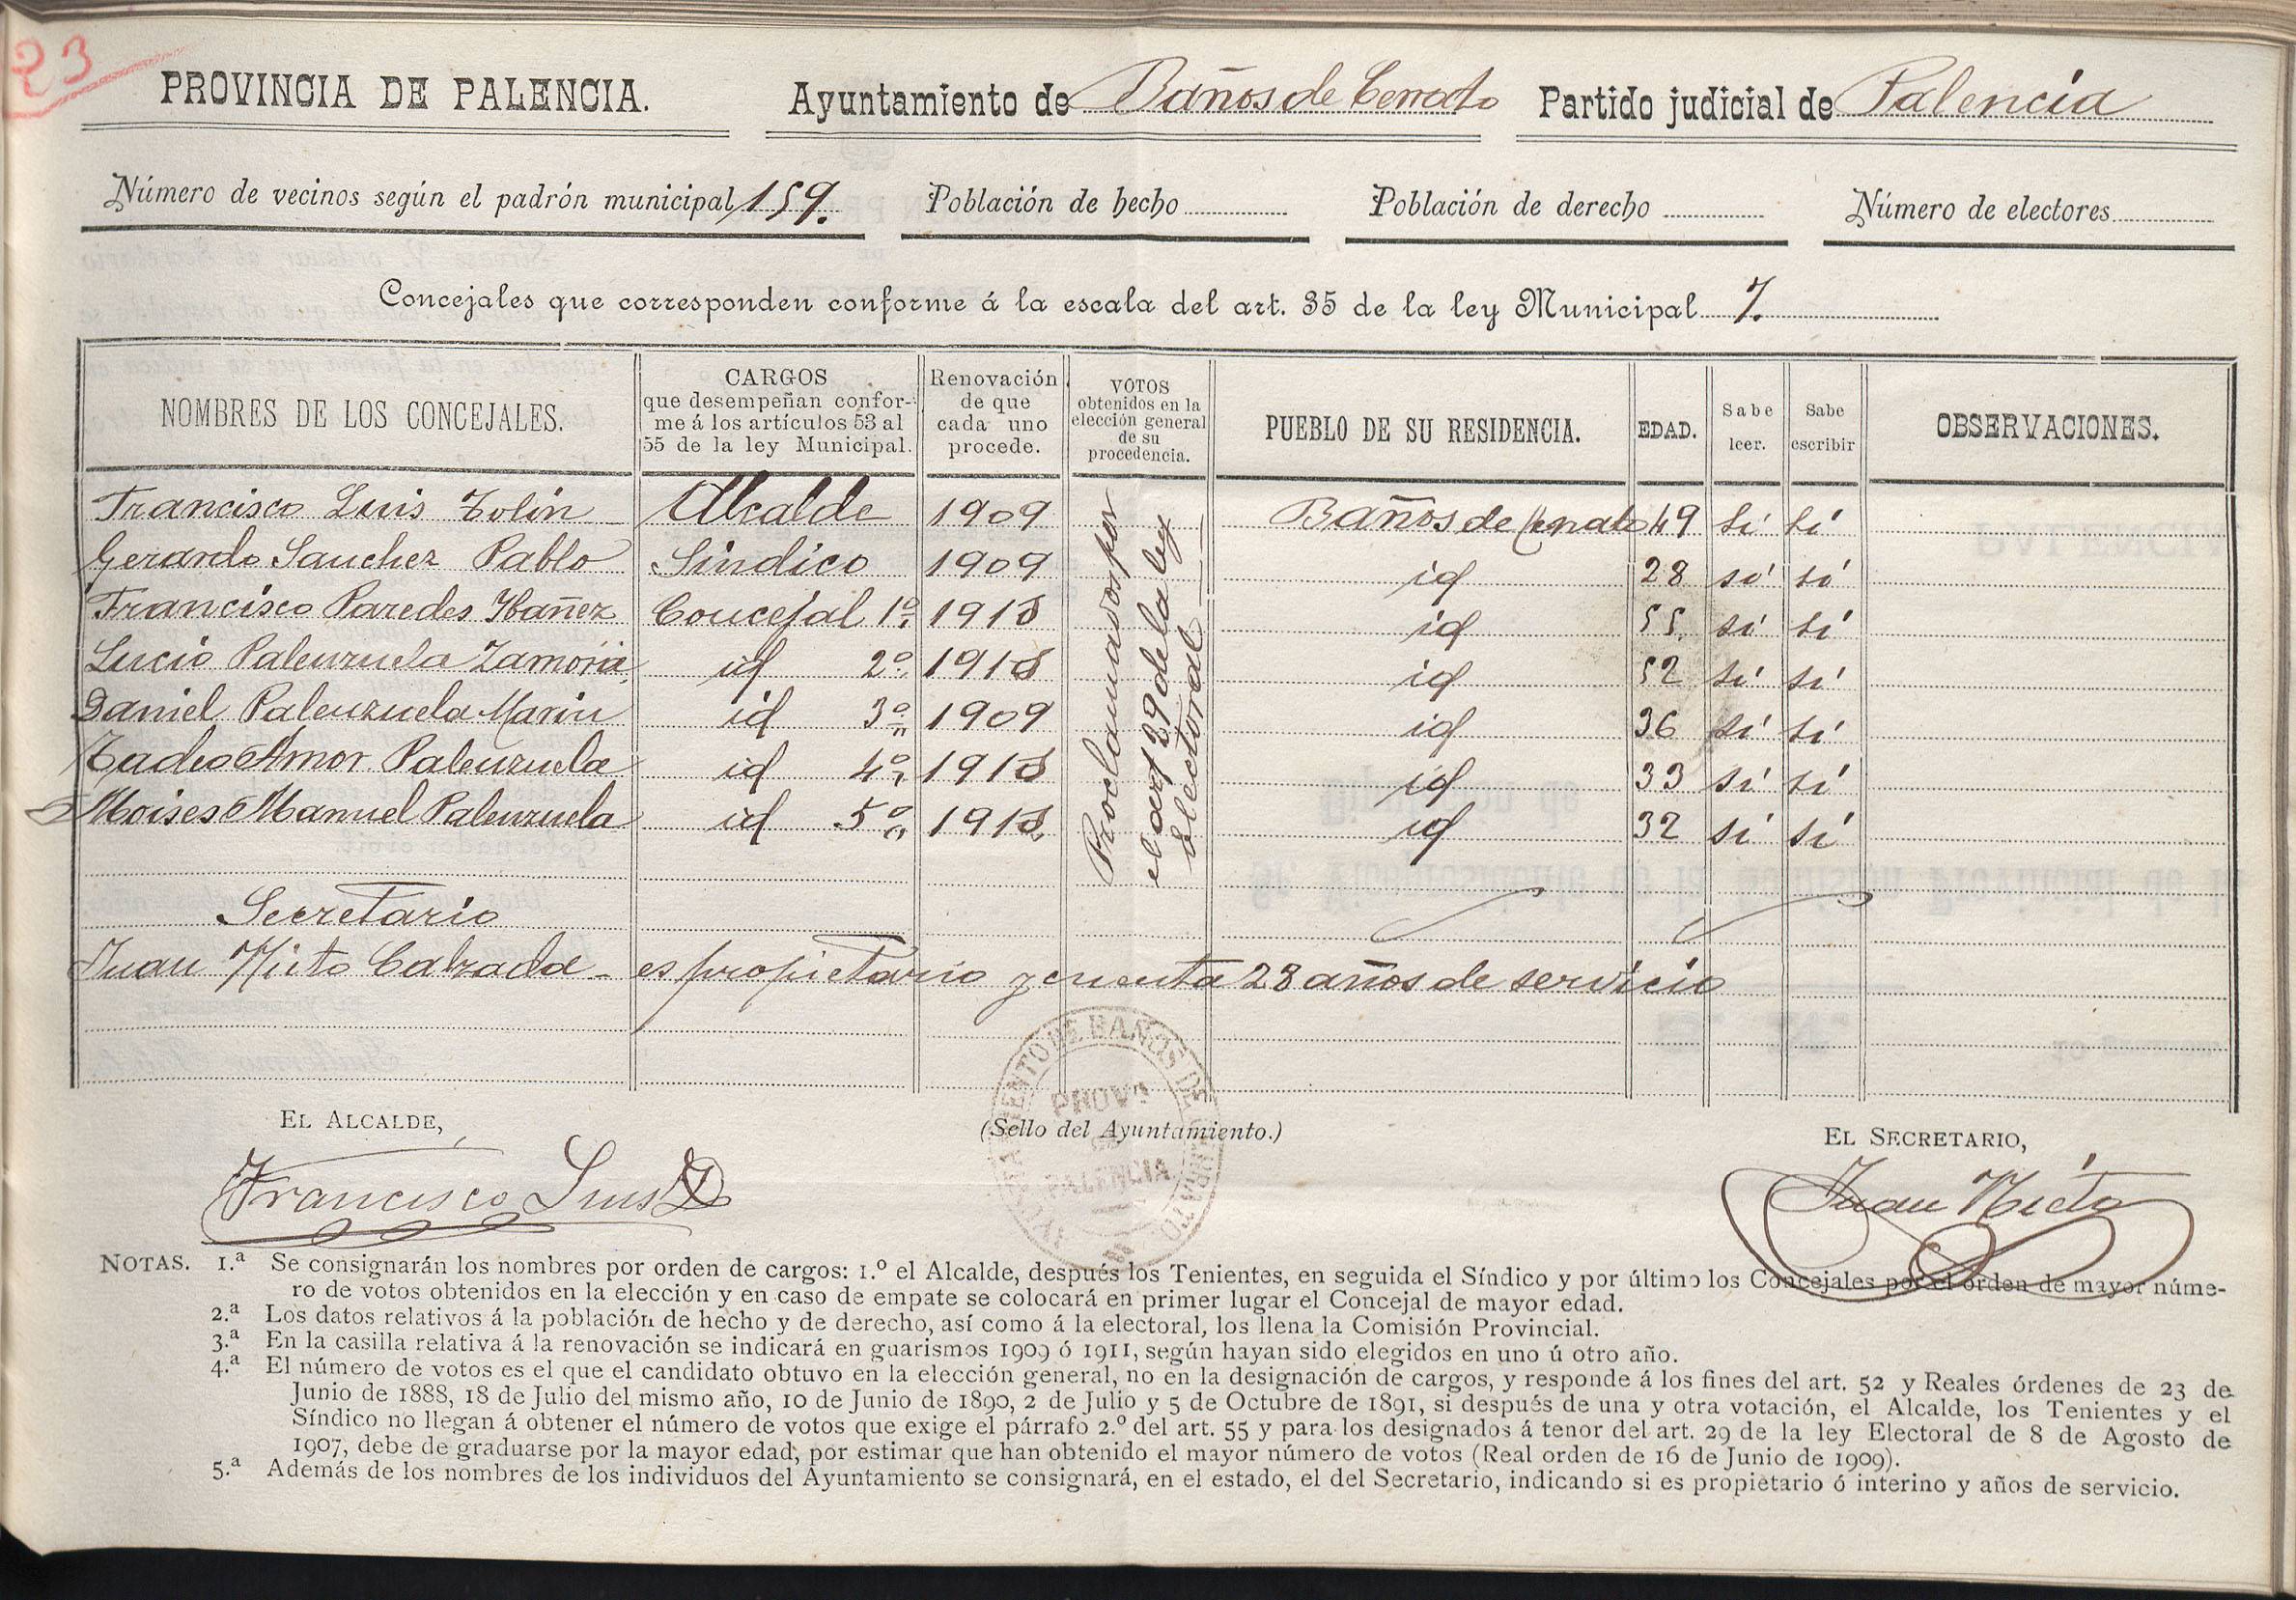 23
PROVINCIA DE PALENCIA. Ayuntamiento de Baños de Cerrato Partido judicial de Palencia
Número de vecinos según el padrón municipal 159. Población de hecho Población de derecho Número de electores
Concejales que corresponden conforme á la escala del art. 35 de la ley Municipal 7.
NOMBRES DE LOS CONCEJALES.
CARGOS
que desempeñan confor-
me á los artículos 53 al
55 de la ley Municipal.
Renovación
de que
cada uno
procede.
VOTOS
obtenidos en la
elección general
de su
procedencia.
PUEBLO DE SU RESIDENCIA.
EDAD.
Sabe
leer.
Sabe
escribir
OBSERVACIONES.
Francisco Luis Tolin Alcalde 1909 Baños de Cerrato 49 si si
Gerardo Sanchez Pablo Sindico 1909 id 28 si si
Francisco Paredes Ibañez Concejal 1º 191 id 55 si si
Lucio Palenzuela Zamora id 2º 191 id 52 si si
Daniel Palenzuela Marin id 3º 1909 id 36 si si
Tadeo Amor Palenzuela id 4º 191 id 33 si si
Moises Manuel Palenzuela id 5º 191 id 32 si si
Proclamados por
el art 29 de la ley
electoral
Secretario
Juan Nieto Calzada - es propietario y cuenta 28 años de servicio
EL ALCALDE,
(Sello del Ayuntamiento.)
EL SECRETARIO,
AYUNTAMIENTO DE BAÑOS DE CERRATO
PROVª
DE
PALENCIA
Francisco Luis
Juan Nieto
NOTAS. 1.ª Se consignarán los nombres por orden de cargos: 1.º el Alcalde, después los Tenientes, en seguida el Síndico y por último los Concejales por el orden de mayor núme-
ro de votos obtenidos en la elección y en caso de empate se colocará en primer lugar el Concejal de mayor edad.
2.ª Los datos relativos á la población de hecho y de derecho, así como á la electoral, los llena la Comisión Provincial.
3.ª En la casilla relativa á la renovación se indicará en guarismos 1909 ó 1911, según hayan sido elegidos en uno ú otro año.
4.ª El número de votos es el que el candidato obtuvo en la elección general, no en la designación de cargos, y responde á los fines del art. 52 y Reales órdenes de 23 de
Junio de 1888, 18 de Julio del mismo año, 10 de Junio de 1890, 2 de Julio y 5 de Octubre de 1891, si después de una y otra votación, el Alcalde, los Tenientes y el
Síndico no llegan á obtener el número de votos que exige el párrafo 2.º del art. 55 y para los designados á tenor del art. 29 de la ley Electoral de 8 de Agosto de
1907, debe de graduarse por la mayor edad, por estimar que han obtenido el mayor número de votos (Real orden de 16 de Junio de 1909).
5.ª Además de los nombres de los individuos del Ayuntamiento se consignará, en el estado, el del Secretario, indicando si es propietario ó interino y años de servicio.